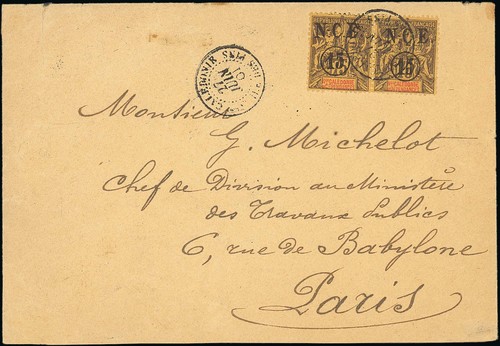 N.C.E. N.C.E.
15 15
ILE DES PINS
CALEDONIE
27
JUIN
01
Monsieur
G. Michelot
Chef de Division au Ministère
des Travaux Publics
6, rue de Babylone
Paris